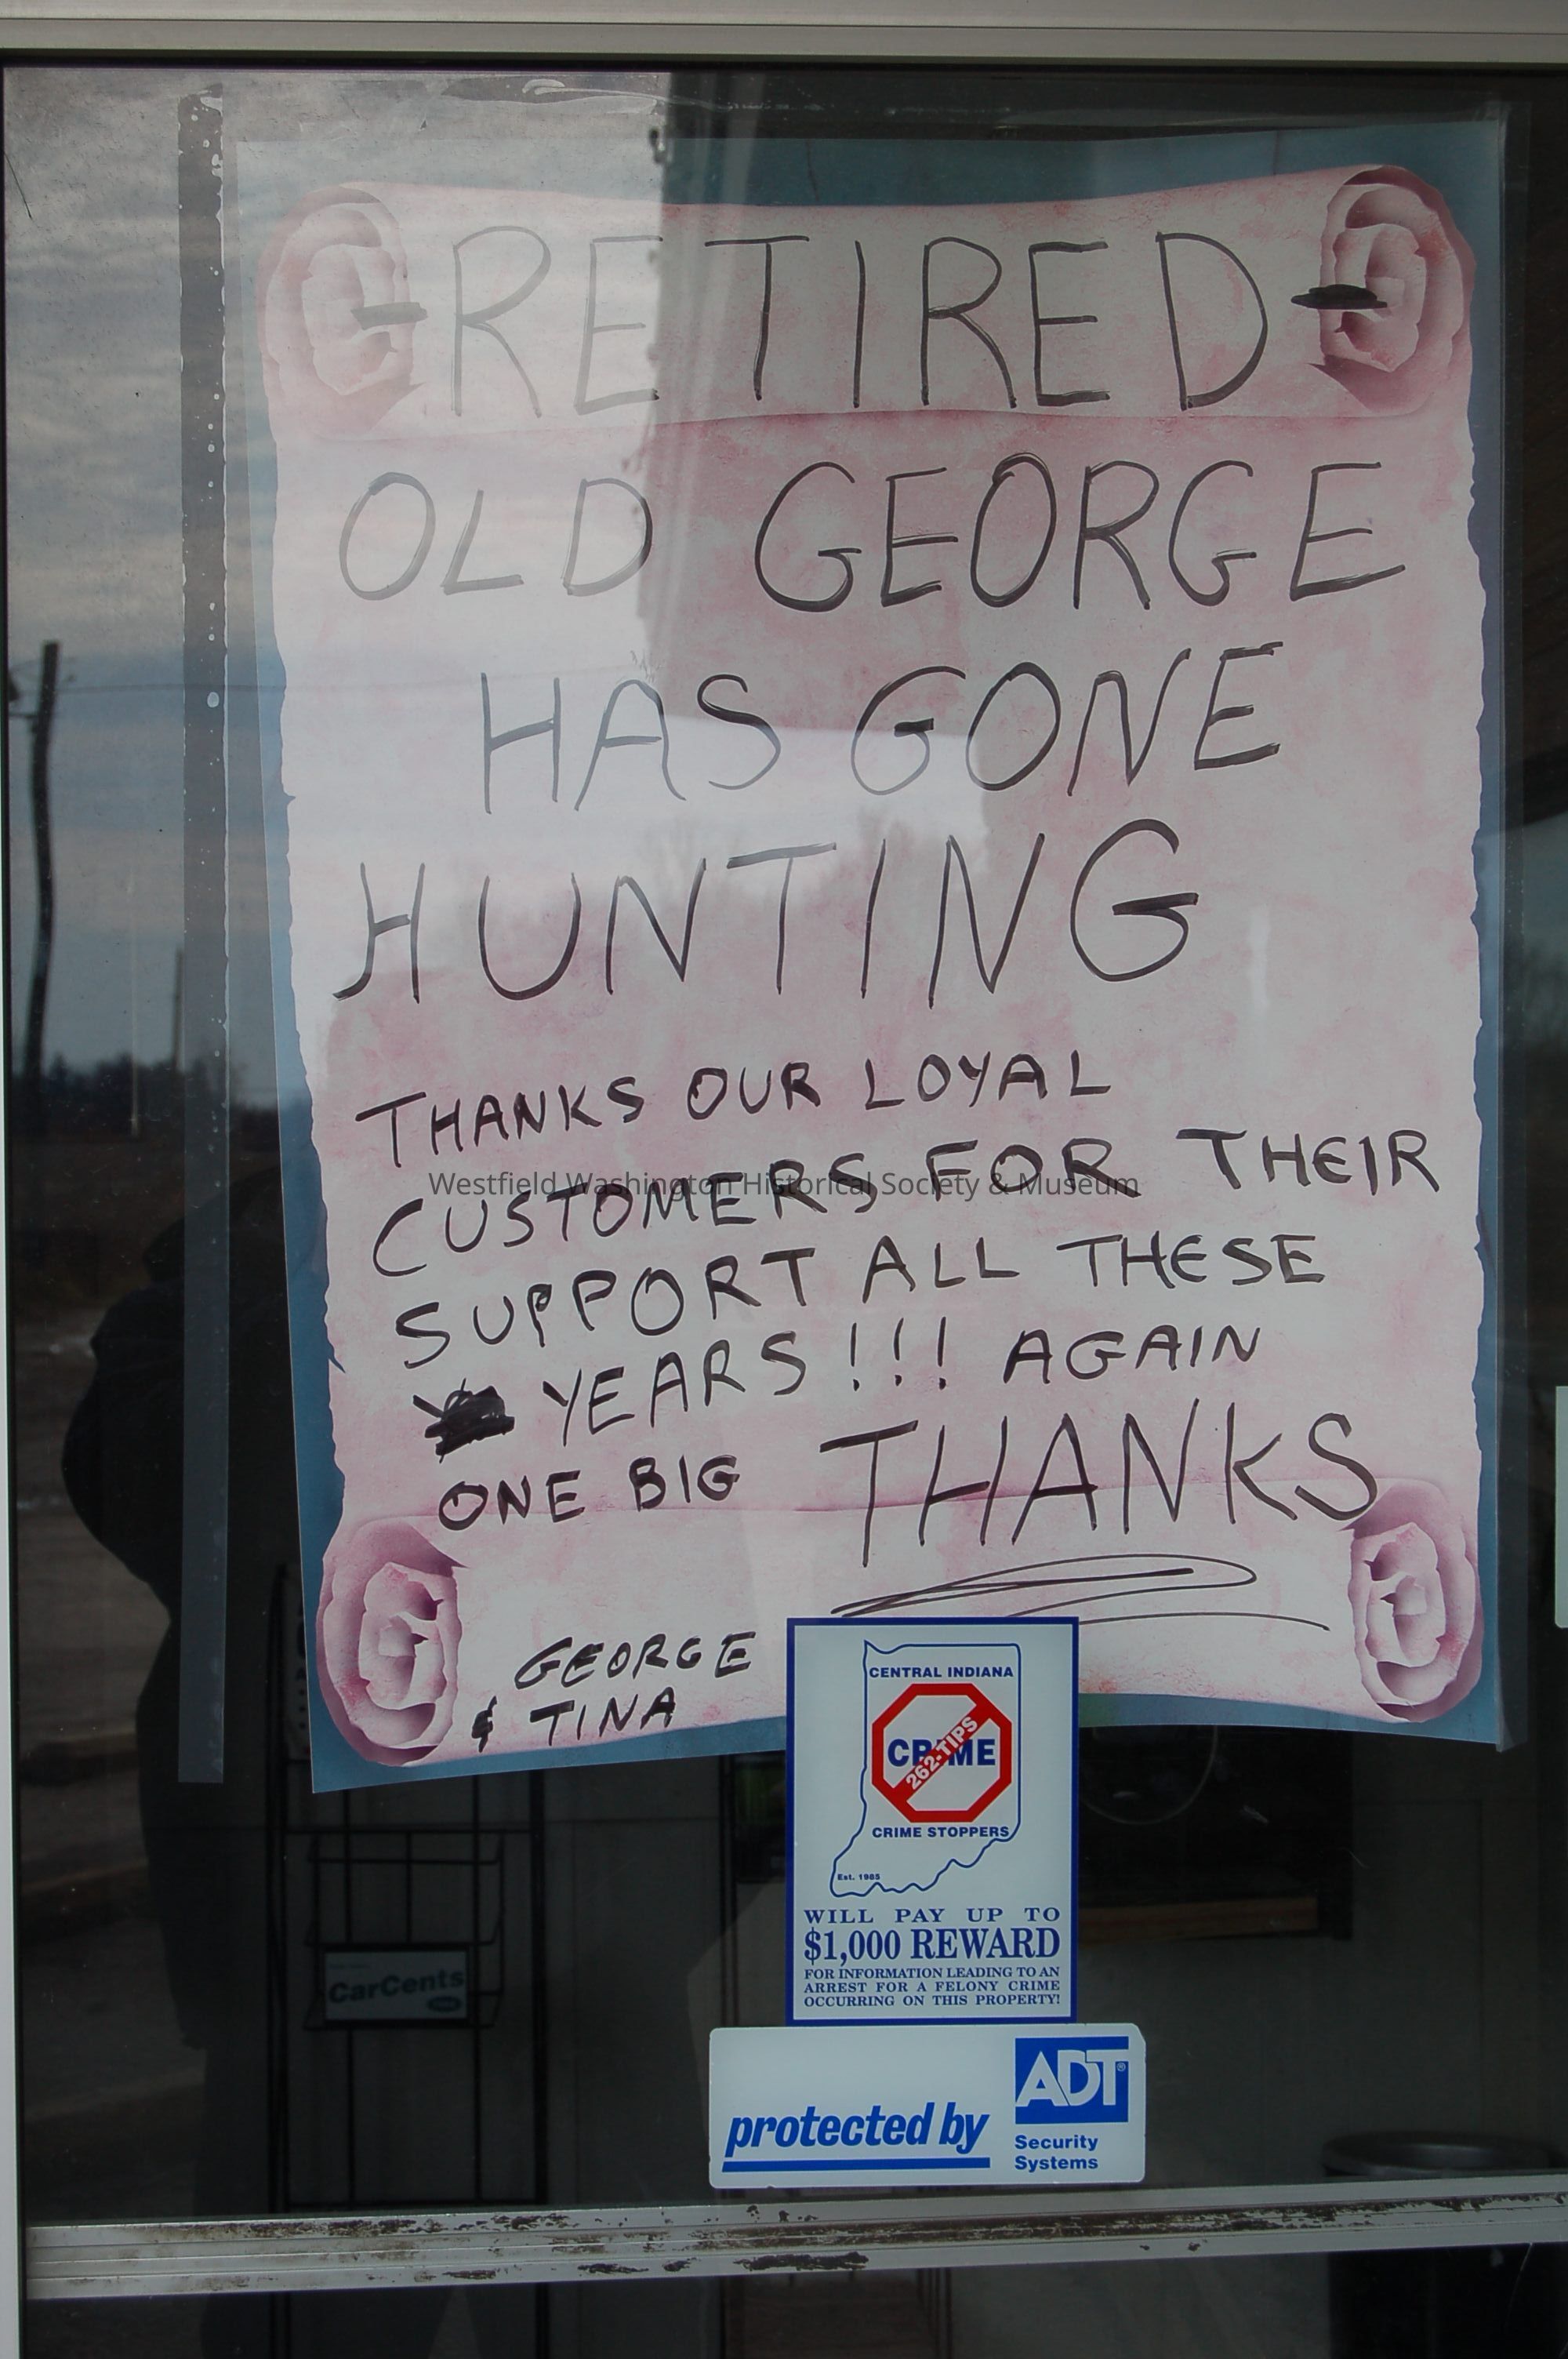 -RETIRED-
OLD GEORGE
HAS GONE
HUNTING
THANKS OUR LOYAL
CUSTOMERS FOR THEIR
Westfield Washington Historical Society & Museum
SUPPORT ALL THESE
YEARS!!! AGAIN
ONE BIG THANKS
GEORGE
& TINA
CENTRAL INDIANA
CRIME
262-TIPS
CRIME STOPPERS
Est. 1985
WILL PAY UP TO
$1,000 REWARD
FOR INFORMATION LEADING TO AN
ARREST FOR A FELONY CRIME
OCCURRING ON THIS PROPERTY!
CarCents
protected by
ADT®
Security
Systems